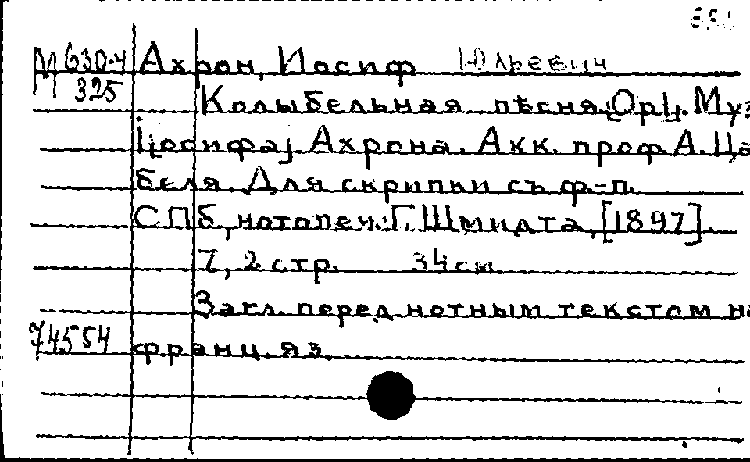 М 630-4 Ахрон, Иосиф Юльевич
325 Колыбельная пѣсня. Ор. 1. Муз
I[осифа] Ахрона. Акк. проф А. Ца
беля. Для скрипки съ ф-п.
СПб, нотопеч. Г. Шмидта, [1897].
7, 2 стр. 34 см
Загл. перед нотным текстом н
74554 франц. яз.